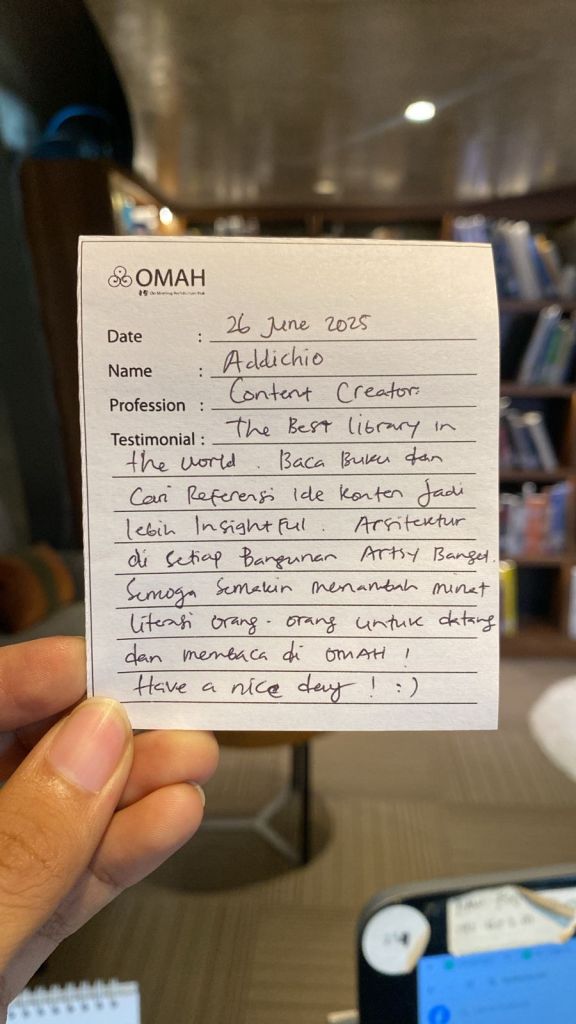 OMAH
Date : 26 June 2025
Name : Addichio
Profession : Content Creator.
Testimonial : The Best library in
the world. Baca Buku dan
Cari Referensi Ide Konten Jadi
lebih Insightful. Arsitektur
di setiap Bangunan Artsy Banget.
Semoga Semakin menambah minat
literasi orang-orang untuk datang
dan membaca di OMAH !
Have a nice day ! :)